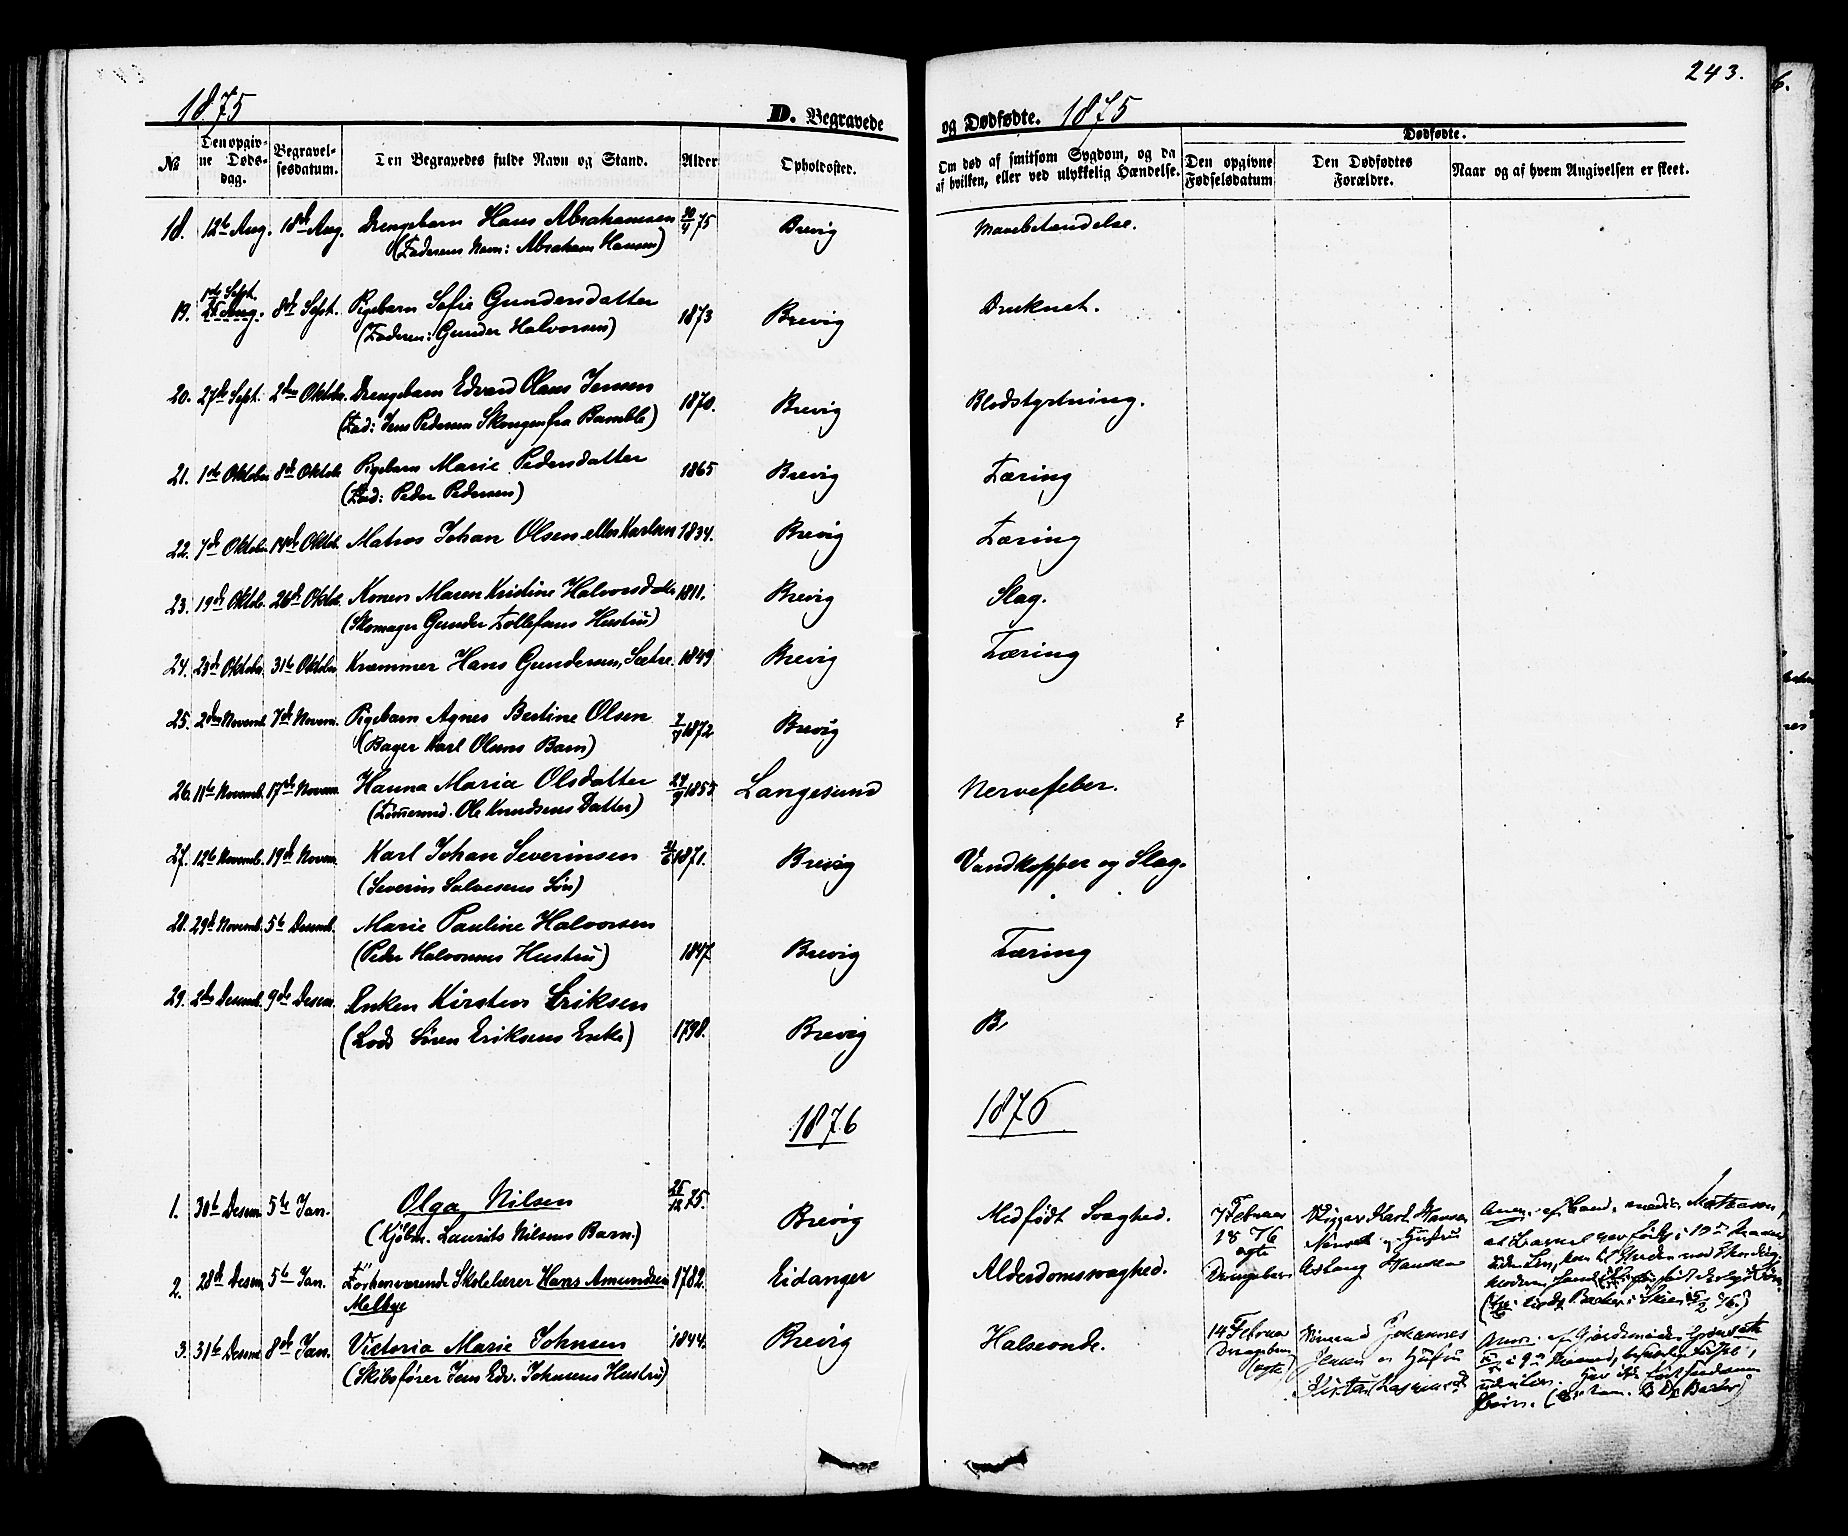 243.
1875 D. Begravede og Dødfødte. 1875
Dødfødte.
No. Den opgivne Dødsdag. Begravelsesdatum. Den Begravedes fulde Navn og Stand. Alder Opholdssted. Om død af smitsom Sygdom, og da af hvilken, eller ved ulykkelig Hændelse. Den opgivne Fødselsdatum Den Dødfødtes Forældre. Naar og af hvem Angivelsen er skeet.
18. 12te Aug. 18de Aug. Drengebarn Hans Abrahamsen 75 Brevig Mavebetændelse.
(Faderens Navn: Abraham Hansen)
1ste Sept.
19. 25 Aug. 8de Sept. Pigebarn Sofie Gundersdatter 1873 Brevig Druknet.
(Faderen: Gunder Halvorsen)
20. 27de Sept. 2den Oktober. Drengebarn Edvard Olaus Jensen 1870. Brevig Blodstyrtning.
(Fad: Jens Pedersen Skougen fra Bamble)
21. 1ste Oktober 8de Oktob. Pigebarn Marie Pedersdatter 1865 Brevig Tæring
(Fad: Peder Pedersen)
22. 7de Oktober 14de Oktob. Matros Johan Olsen eller Karlsen 1834. Brevig Tæring
23. 19de Oktob. 26de Oktob. Konen Maren Kristine Halvorsdatter 1811. Brevig Slag.
(Skomager Gunder Tollefsens Hustru)
24. 23de Oktober 31te Oktober Kræmmer Hans Gundersen, Sætre. 1849 Brevig Tæring
25. 2den Novemb. 7de Novem. Pigebarn Agnes Bertine Olsen 1872 Brevig
(Bager Karl Olsens Barn)
26. 11te Novemb. 17de Novem Hanna Maria Olsdatter 1855 Langesund Nervefeber.
(Tømmermd. Ole Knudsens Datter)
27. 12te Novemb. 19de Novem. Karl Johan Severinsen 1871. Brevig Vandkopper og Slag.
(Severin Salvesens Søn)
28. 29de Novemb. 5te Desemb. Marie Pauline Halvorsen
(Peder Halvorsens Hustru) 1847 Brevig Tæring
29. 2den Desemb. 9de Desem. Enken Kirsten Eriksen
(Lods Sören Eriksens Enke) 1798. Brevig B.
1876 1876
1. 30te Desem. 5te Jan. Olga Nilsen 25/12 75. Brevig Medfödt Svaghed.
(Kjöbm. Laurits Nilsens Barn.)
7 Februar 1876 ægte Drengebarn
Aslaug Hansen
2. 28de Desem. 5te Jan. Forhenværende Skolelærer Hans Amundsen 1782. Eidanger Alderdomssvaghed.
Melbye
3. 31te Desem. 8de Jan. Victoria Marie Johnsen 1844. Brevig Halsonde.
(Skibsfører Jens Edv. Johnsens Hustru)
14 Februar Drengebarn (ægte)
Johannes Jensen